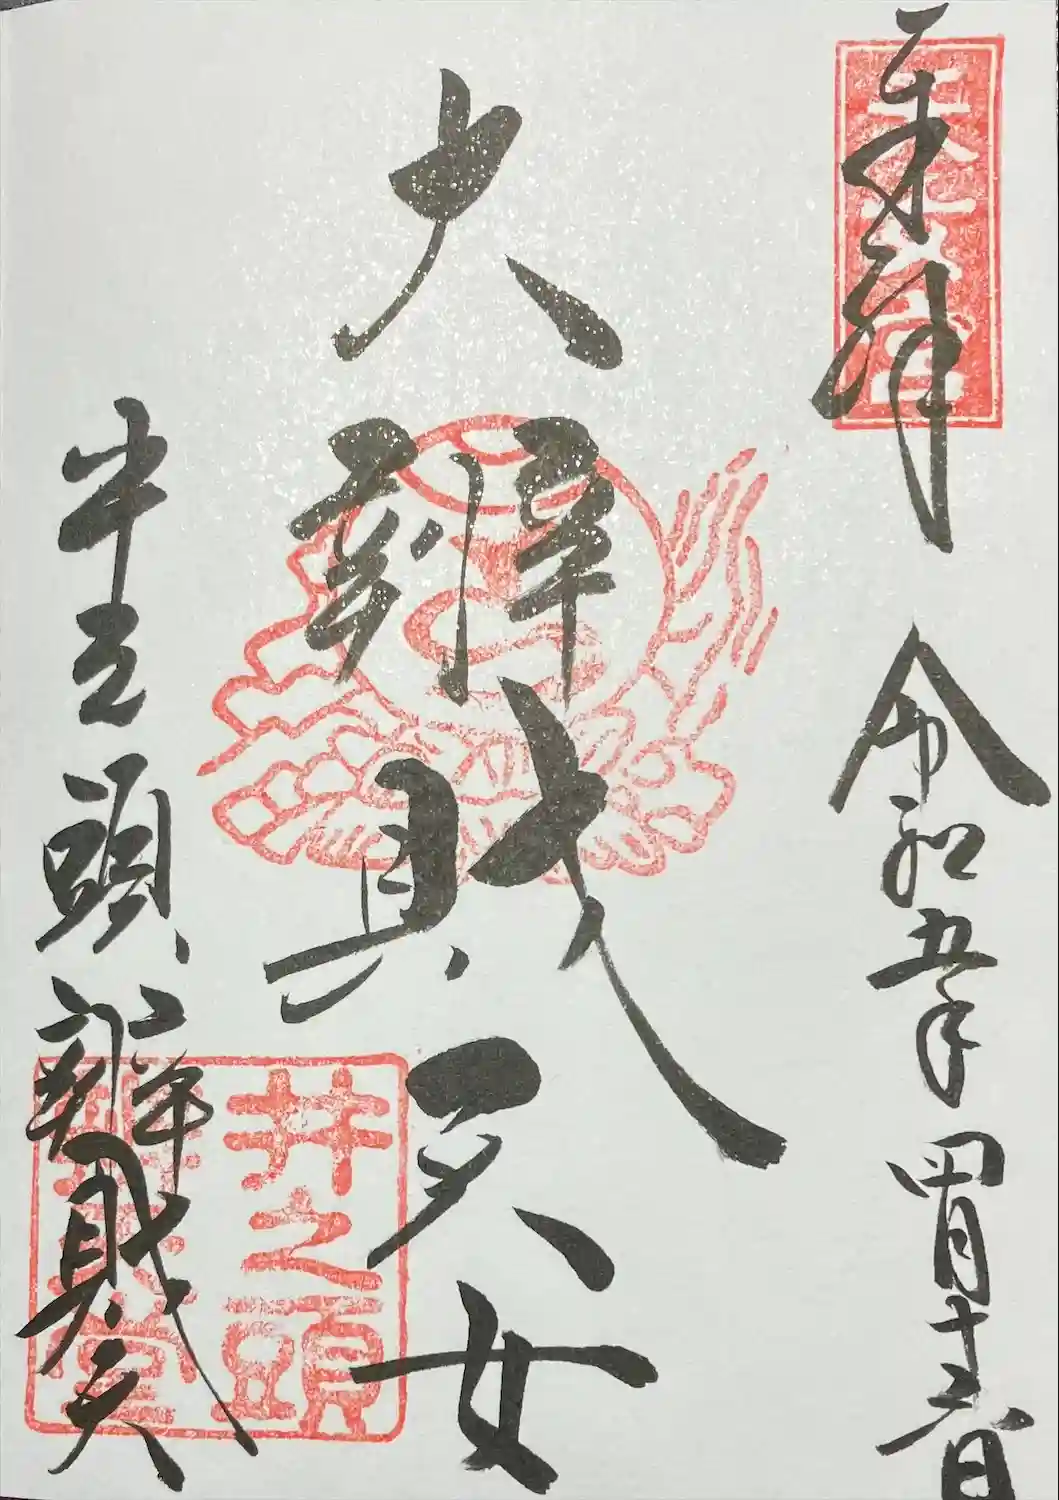 奉拝
令和五年 四月十三日
大辨財天女
井之頭辨財天
井之頭